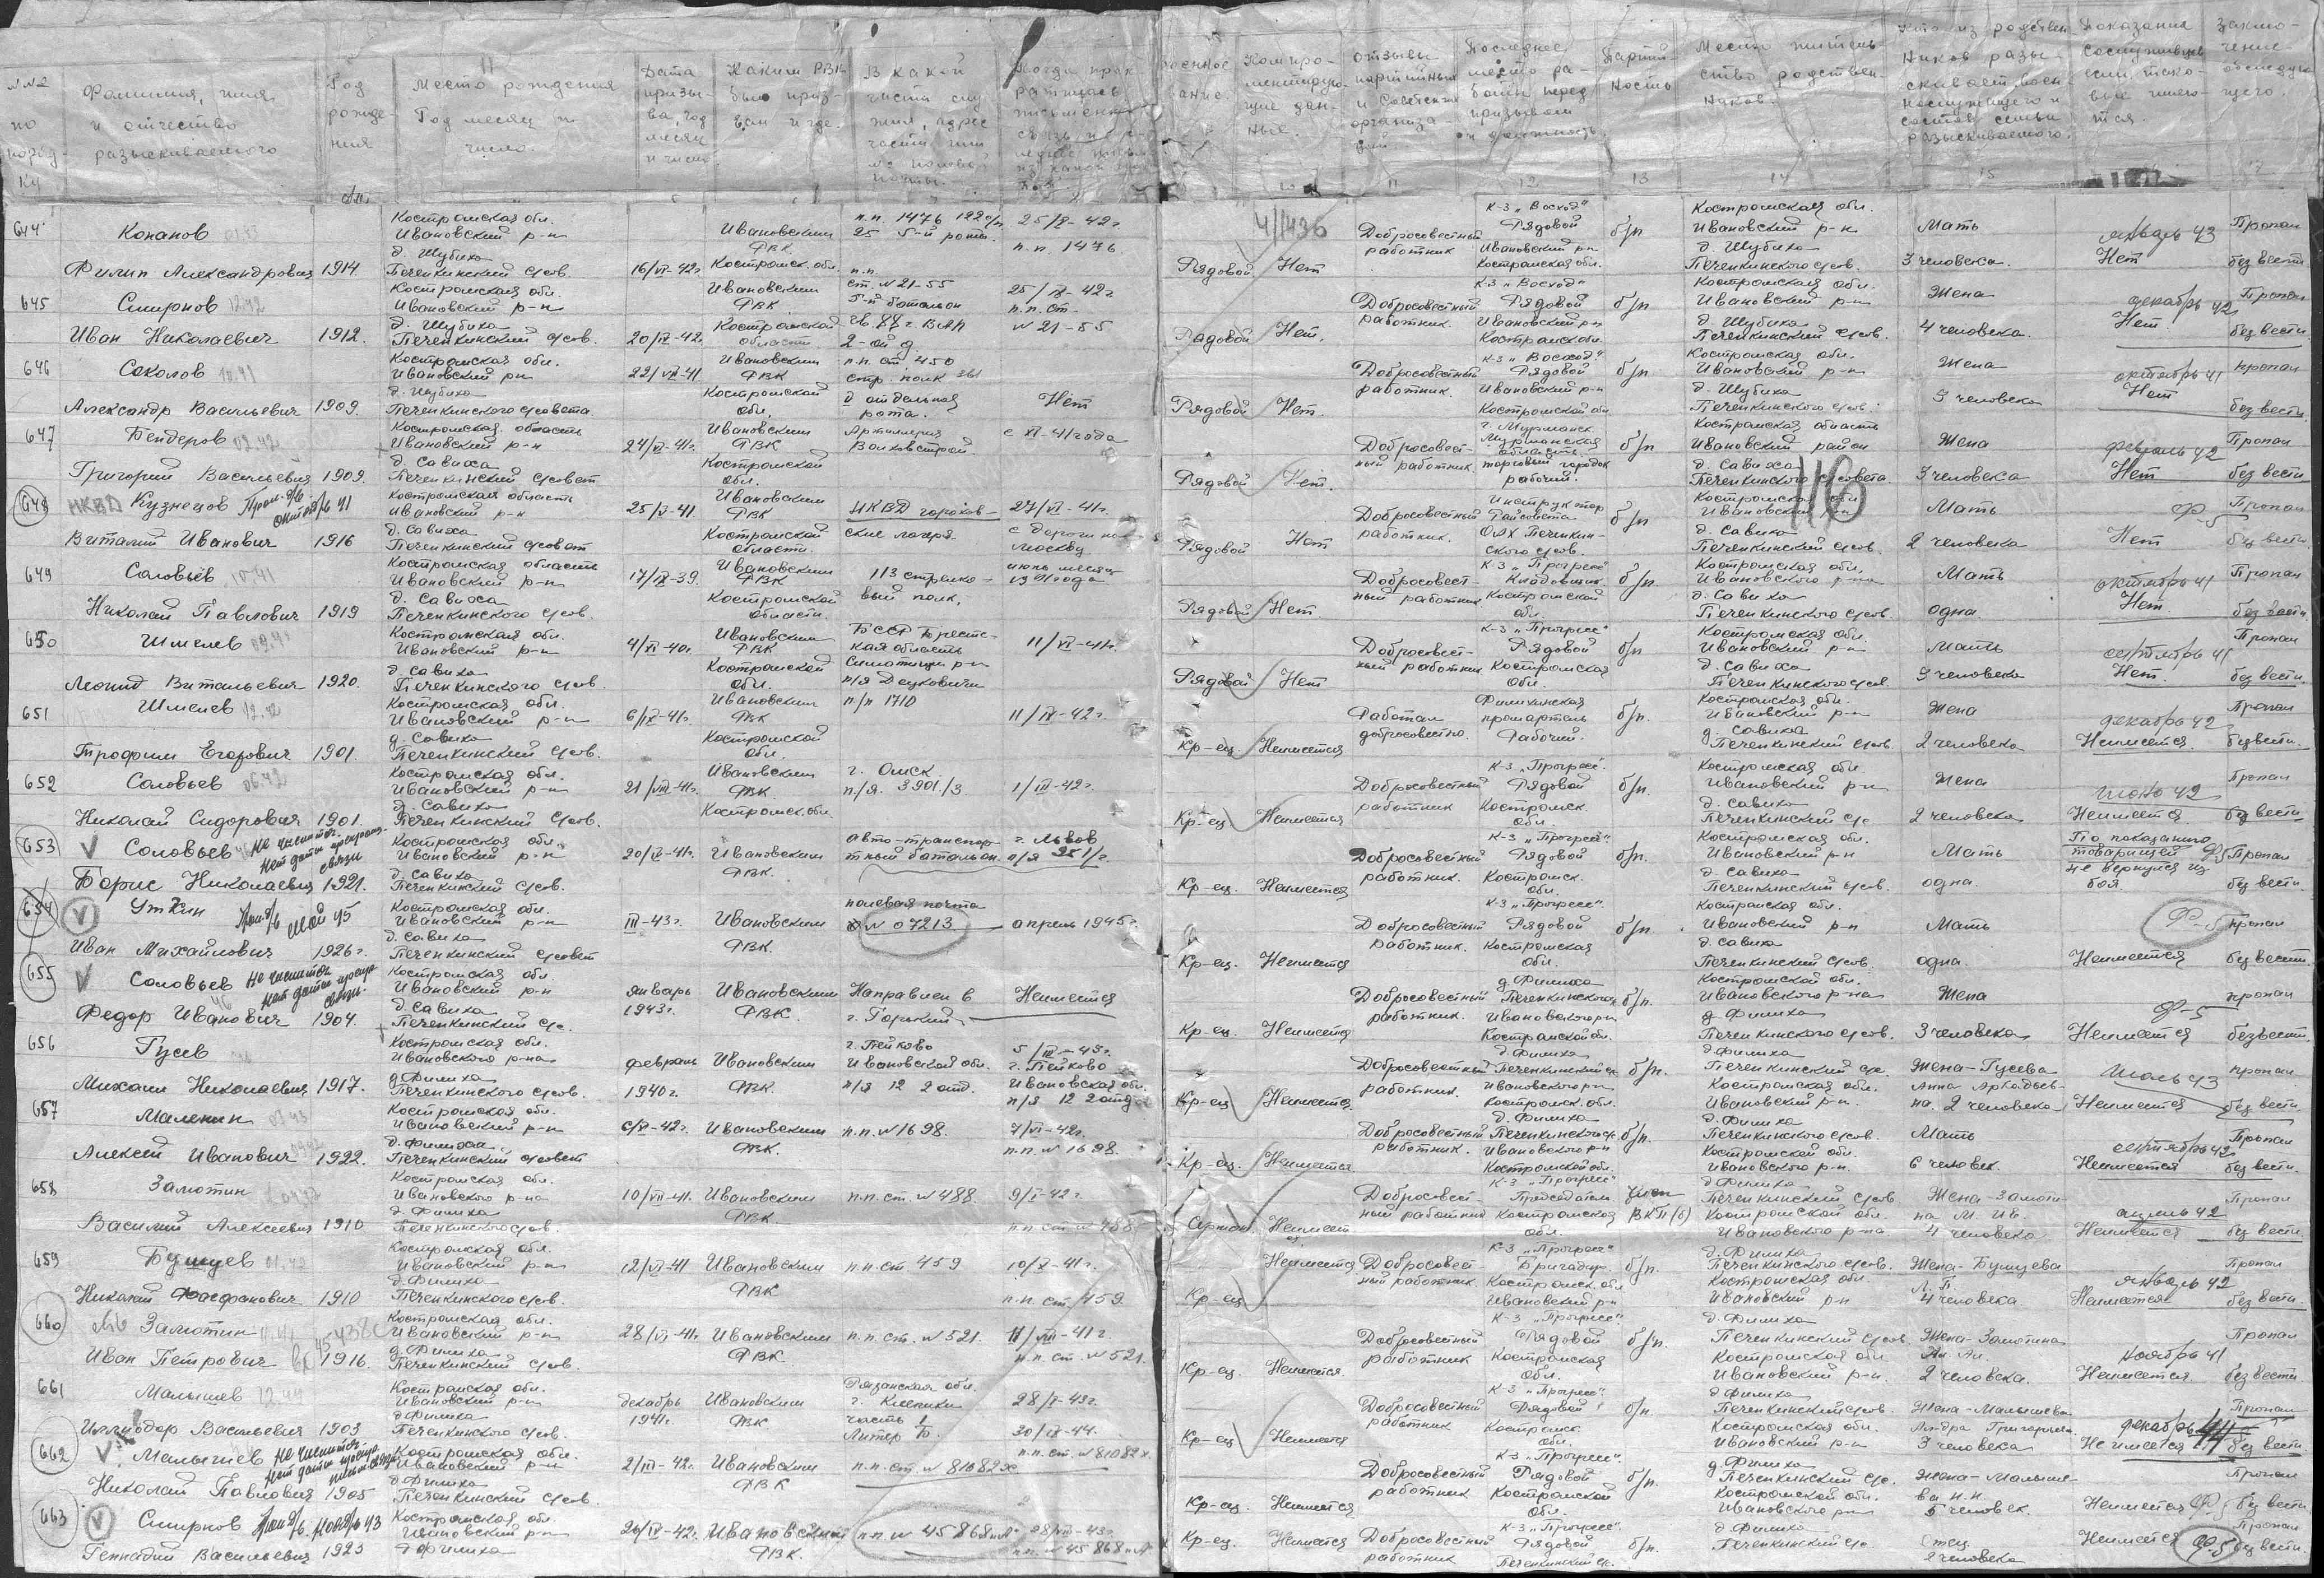 №№ по порядку
Фамилия, имя и отчество разыскиваемого
Год рождения
Место рождения Год месяц и число.
Дата призыва, год месяц и число
Каким РВК был призван и где.
В какой части служил, адрес части или № полевой почты.
Компрометирующие данные.
Отзывы партийных и советских организаций
Последнее место работы перед призывом и должность
Партийность
Место жительство родственников.
Кто из родственников разыскивает военнослужащего и состав семьи разыскиваемого.
Показания сослуживцев если таковые имеются.
10 11 12 13 14 15 17
4/1436
116
644 Конанов Филип Александрович 1914 Костромская обл. Ивановский р-н д. Шубиха Печенкинский с/сов. 16/VI-42г Ивановским РВК Костромск. обл. п.п. 1476 25/IX-42г п.п. 1476
Рядовой Нет Добросовестный работник К-з „Восход" Рядовой Ивановский р-н Костромская обл. б/п Костромская обл. Ивановский р-н д. Шубиха Печенкинского с/сов. Мать 3 человека. январь 43 Нет Пропал без вести
645 Смирнов 12.42 Иван Николаевич 1912. Костромская обл. Ивановский р-н д. Шубиха Печенкинский с/сов. 20/IV-42г Ивановским РВК Костромской области п.п. ст. №21-55 25/IX-42г п.п. ст. №21-55
Рядовой Нет. Добросовестный работник. К-з „Восход" Рядовой Ивановский р-н Костром. обл. б/п Костромская обл. Ивановский р-н д. Шубиха Печенкинский с/сов. Жена 4 человека. декабрь 42 Нет. Пропал без вести
646 Соколов 10.41 Александр Васильевич 1909. Костромская обл. Ивановский р-н д. Шубиха Печенкинского с/совета. 22/VI-41 Ивановским РВК Костромской обл. п.п. ст. 450 стр. полк 361 отдельная рота. Нет
Рядовой Нет. Добросовестный работник. К-з „Восход" Рядовой Ивановский р-н Костромской обл б/п Костромская обл. Ивановский р-н д. Шубиха Печенкинского с/сов. Жена 3 человека октябрь 41 Нет пропал без вести
647 Бендеров 02.42 Григорий Васильевич 1909. Костромская область Ивановский р-н д. Савиха Печенкинский с/совет 24/VI-41г. Ивановским РВК Костромской обл. Артиллерия Волховстрой с XI-41 года
Рядовой Нет. Добросовестный работник. г. Мурманск Мурманская область торговый городок рабочий. б/п Костромская область Ивановский район д. Савиха Печенкинского с/совета. Жена 3 человека февраль 42 Нет Пропал без вести
648 НКВД Кузнецов Проп. б/в октябрь 41 Виталий Иванович 1916 Костромская область Ивановский р-н д. Савиха Печенкинский с/совет 25/V-41. Ивановским РВК Костромской области. НКВД гороховские лагеря. 27/VI-41г. с дороги на Москву
Рядовой Нет Добросовестный работник. Инструктор Райсовета ОАХ Печенкинского с/сов. б/п Костромская обл. Ивановский р-н д. Савиха Печенкинский с/сов. Мать 2 человека Ф-5 Нет Пропал без вести
649 Соловьев 10.41 Николай Павлович 1919 Костромская область Ивановский р-н д. Савиха Печенкинского с/сов. 17/IX-39. Ивановским РВК Костромской области. 113 стрелковый полк. июнь месяц 1941 года
Рядовой Нет. Добросовестный работник К-з „Прогресс" Кладовщик Костромской обл. б/п Костромская обл. Ивановского р-на д. Савиха Печенкинского с/сов. Мать одна октябрь 41 Нет. Пропал без вести
650 Шмелев 09.41 Леонид Витальевич 1920. Костромская обл. Ивановский р-н д. Савиха Печенкинского с/сов. 4/VI-40г. Ивановским РВК Костромской обл. БССР Брестская область 11/VI-41г.
Рядовой Нет Добросовестный работник К-з „Прогресс" Рядовой Костромская обл. б/п Костромская обл. Ивановский р-н д. Савиха Печенкинского с/сов Мать 3 человека сентябрь 41 Нет. Пропал без вести.
651 Шмелев 12.42 Трофим Егорович 1901. Костромская обл. Ивановский р-н д. Савиха Печенкинский с/сов. 6/IX-41г. Ивановским РВК Костромской обл. п/п 1710 11/IX-42г.
Кр-ец Неимеется Работал добросовестно. Филихинская промартель Рабочий. б/п. Костромская обл. Ивановский р-н д. Савиха Печенкинский с/сов Жена 2 человека декабрь 42 Неимеется. Пропал без вести.
652 Соловьев 06.42 Николай Сидорович 1901. Костромская обл. Ивановский р-н д. Савиха Печенкинский с/сов. 21/VIII-41г. Ивановским РВК Костромск. обл. г. Омск п/я. 3901/3 1/III-42г.
Кр-ец Неимеется Добросовестный работник К-з „Прогресс". Рядовой Костромск. обл. б/п. Костромская обл. Ивановский р-н д. Савиха Печенкинский с/с Жена 2 человека июнь 42 Неимеется Пропал без вести
653 V Соловьев Не числится. нет даты прекращ. связи Борис Николаевич 1921. Костромская обл. Ивановский р-н д. Савиха Печенкинский с/сов. 20/IV-41г. Ивановским РВК. авто-транспортный батальон. г. Львов п/я 251/г.
Кр-ец. Неимеется Добросовестный работник. К-з „Прогресс". Рядовой Костромск. обл. б/п. Костромская обл. Ивановский р-н д. Савиха Печенкинский с/сов. Мать одна. По показанию товарищей не вернулся из боя. Ф-5 Пропал без вести
654 V Уткин Проп. б/в май 45 Иван Михайлович 1926г. Костромская обл. Ивановский р-н д. Савиха Печенкинский с/совет III-43г. Ивановским РВК. полевая почта № 07213 апрель 1945г.
Кр-ец. Неимеется Добросовестный работник. К-з „Прогресс". Рядовой Костромская обл. б/п. Костромская обл. Ивановский р-н д. Савиха Печенкинский с/сов. Мать одна. Ф-5 Неимеется пропал без вести.
655 V Соловьев Не числится. нет даты прекр. связи. Федор Иванович 1904. Костромская обл. Ивановский р-н д. Савиха Печенкинский с/с. январь 1943г. Ивановским РВК. Направлен в г. Горький Неимеется
Кр-ец. Неимеется Добросовестный работник. д. Филиха Печенкинского с/с Ивановского р-н Костромской обл. б/п. Костромской обл. Ивановского р-на д. Филиха Печенкинского с/сов. Жена 3 человека Ф-5 Неимеется пропал без вести
656 Гусев Михаил Николаевич 1917. Костромская обл. Ивановского р-на д. Филиха Печенкинского с/сов. февраль 1940г. Ивановским РВК. г. Тейково Ивановской обл. п/я 12 2 отд. 5/III-43г. г. Тейково Ивановская обл. п/я 12 2 отд
Кр-ец Неимеется. Добросовестный работник. д. Филиха Печенкинский с/с Ивановского р-н Костромск. обл. б/п. д. Филиха Печенкинский с/с Костромская обл. Ивановский р-н. Жена-Гусева Анна Аркадьевна. 2 человека июль 43 Неимеется пропал без вести
657 Маленкин Алексей Иванович 1922. Костромской обл. Ивановский р-н д. Филиха. Печенкинский с/совет 6/X-42г. Ивановским РВК. п.п. №1698. 7/VI-42г. п.п. № 1698.
Кр-ец. Неимеется Добросовестный работник. д. Филиха Печенкинского с/с Ивановского р-н Костромской обл. б/п. д. Филиха Печенкинского с/сов. Костромской обл. Ивановского р-н. Мать 6 человек. сентябрь 42 Неимеется Пропал без вести.
658 Замотин Василий Алексеевич 1910 Костромской обл. Ивановского р-на д. Филиха Печенкинского с/сов. 10/VII-41. Ивановским РВК. п.п. ст. №488. 9/I-42г.
Неимеет Добросовестный работник К-з „Прогресс" Председатель Костромская обл. Член ВКП(б) д. Филиха Печенкинский с/сов Костромской обл. Ивановского р-на 4 человека апрель 42 Неимеется Пропал без вести
659 Бушуев 01.42 Николай 1910 Костромская обл. Ивановский р-н д. Филиха Печенкинского с/сов. 12/VI-41 Ивановским РВК п.п. ст 459 10/X-41г. п.п. ст. 459
Кр-ец Неимеется Добросовестный работник. К-з „Прогресс" Бригадир. Костромск. обл Ивановский р-н б/п. д. Филиха Печенкинского с/сов. Костромская обл. Ивановский р-н Жена-Бушуева Л. П. 4 человека январь 42 Неимеется Пропал без вести
660 Замотин Иван Петрович 1916. Костромская обл. Ивановский р-н д. Филиха Печенкинский с/сов. 28/VI-41г. Ивановским РВК. п.п. ст. №521. 11/VIII-41г. п.п. ст. №521
Кр-ец. Неимеется. Добросовестный работник К-з „Прогресс". Рядовой Костромская обл. б/п. д. Филиха Печенкинский с/сов Костромской обл Ивановский р-н. Жена-Замотина 2 человека. ноябрь 41 Неимеется Пропал без вести
661 Малышев 12.44 Иллиодор Васильевич 1903 Костромская обл. Ивановский р-н д. Филиха Печенкинского с/сов. декабрь 1941г. Ивановским РВК Рязанская обл. часть 1 Литер Б. 28/I-43г. 30/IX-44.
Кр-ец Неимеется Добросовестный работник К-з „Прогресс". Рядовой Костромск. обл. б/п. д Филиха Печенкинский с/сов. Костромская обл. Ивановский р-н Жена-Малышева 3 человека декабрь 44 Не имеется Пропал без вести
662 V Малышев Не числится. нет даты прекр. письм. связи Николай Павлович 1905 Костромская обл. Ивановский р-н д. Филиха Печенкинский с/сов. 2/III-42г. Ивановским РВК п.п. ст. № 81082х п.п. ст. № 81082х.
Кр-ец. Неимеется Добросовестный работник К-з „Прогресс". Рядовой Костромской обл. б/п. д Филиха Печенкинский с/с. Костромской обл. Ивановского р-н Жена-Малышева Н. Н. 5 человек. Неимеется Ф-5 Пропал без вести
663 V Смирнов Проп. б/в. ноябрь 43 Геннадий Васильевич 1923 Костромская обл. Ивановский р-н д Филиха 26/IV-42г. Ивановский РВК. п.п. № 45868 28/VIII-43г. п.п. № 45868
Кр-ец. Неимеется Добросовестный работник К-з „Прогресс". Рядовой Печенкинский с/с. б/п. д. Филиха Печенкинский с/с. Отец 2 человека Неимеется Ф-5 Пропал без вести.